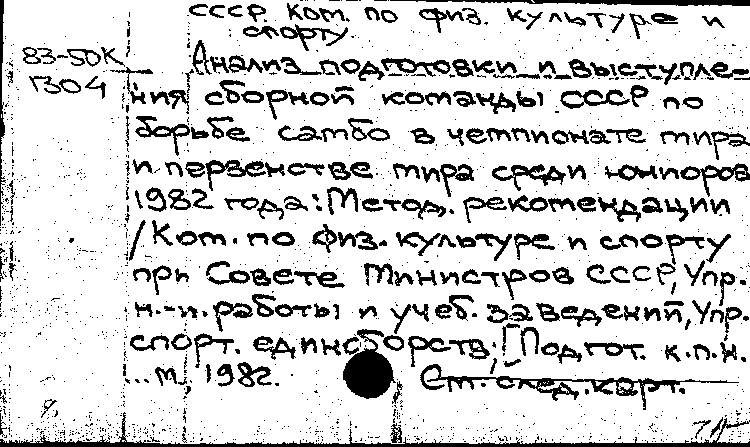 СССР. Ком. по физ. культуре и
спорту.
83-50К
1304
Анализ подготовки и выступле-
ния сборной команды СССР по
борьбе самбо в чемпионате мира
и первенстве мира среди юниоров
1982 года: Метод. рекомендации
/ Ком. по физ. культуре и спорту
при Совете Министров СССР, Упр.
н.-и. работы и учеб. заведений, Упр.
спорт. единоборств; [Подгот. к.п.н.
...м, 1982. См. след. карт.